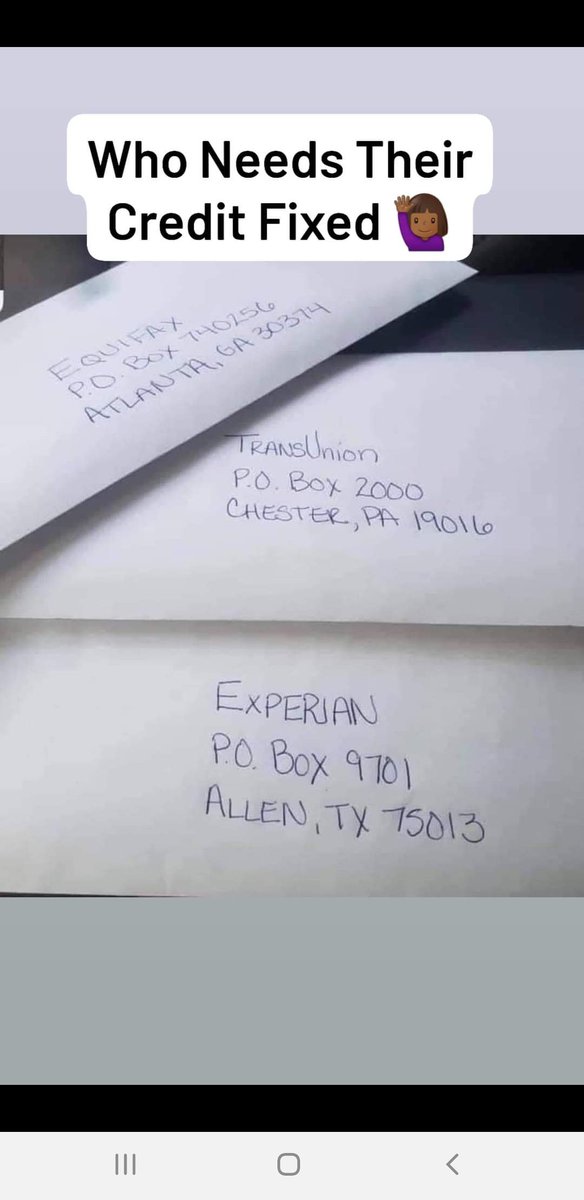 Who Needs Their
Credit Fixed 🙋🏾‍♀️
EQUIFAX
P.O. BOX 740256
ATLANTA, GA 30374
TRANSUnion
P.O. BOX 2000
CHESTER, PA 19016
EXPERIAN
P.O. BOX 9701
ALLEN, TX 75013